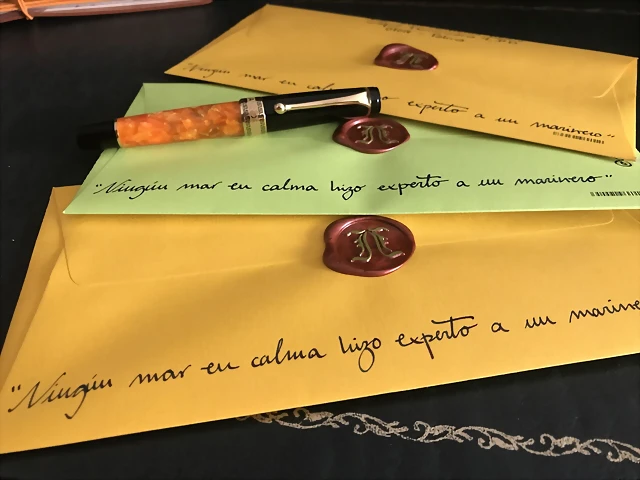 Ningún mar en calma experto a un marinero~
N
"Ningún mar en calma hizo experto a un marinero"
N
"Ningún mar en calma hizo experto a un marine